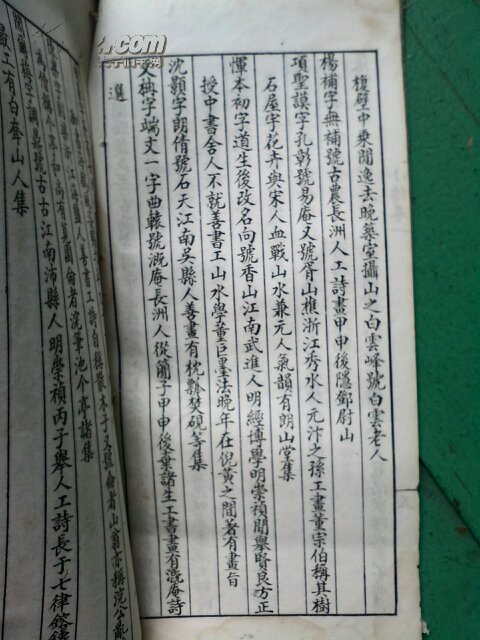 複壁中乘間逸去晚築室攝山之白雲峰號白雲老人
楊補字無補號古農長洲人工詩畫甲申後隱鄧尉山
項聖謨字孔彰號易庵又號胥山樵浙江秀水人元汴之孫工畫董宗伯稱其樹
石屋宇花卉與宋人血戰山水兼元人氣韻有朗山堂集
惲本初字道生後改名向號香山江南武進人明經博學明崇禎間舉賢良方正
授中書舍人不就善書工山水學董巨墨法晚年在倪黃之間著有畫旨
沈顥字朗倩號石天江南吳縣人善畫有枕瓢焚硯等集
文柟字端文一字曲轅號溉庵長洲人從簡子甲申後棄諸生工書畫有溉庵詩
選
善書工詩自稱散木子又號
尚有
者浣筆池个亭諸集
閻爾梅字調鼎號古古江南沛縣人明崇禎丙子舉人工詩長于七律
最工有白耷山人集